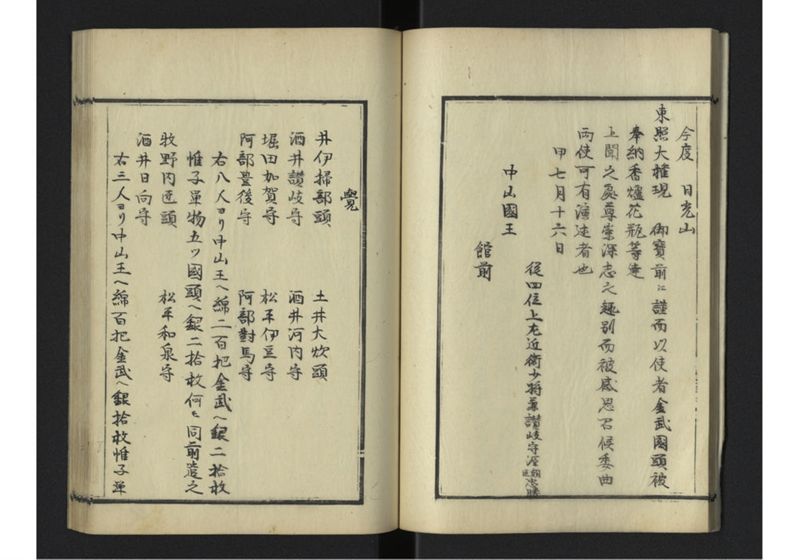 今度　日光山
東照大権現　御寶前ニ謹而以使者金武國頭被
奉納香爐花瓶等達
上聞之處尊崇深志之趣別而被感思召候委曲
両使可有演達者也
甲七月十六日
從四位上左近衛少将兼讃岐守源朝臣忠勝
中山國王
館前
覺
井伊掃部頭　土井大炊頭
酒井讃岐守　酒井河内守
堀田加賀守　松平伊豆守
阿部豊後守　阿部對馬守
右八人ヨリ中山王ヘ綿二百把金武ヘ銀二拾枚
惟子単物五ツ國頭ヘ銀二拾枚何モ同前遣之
牧野内匠頭　松平和泉守
酒井日向守
右三人ヨリ中山王ヘ綿百把金武ヘ銀拾枚惟子単